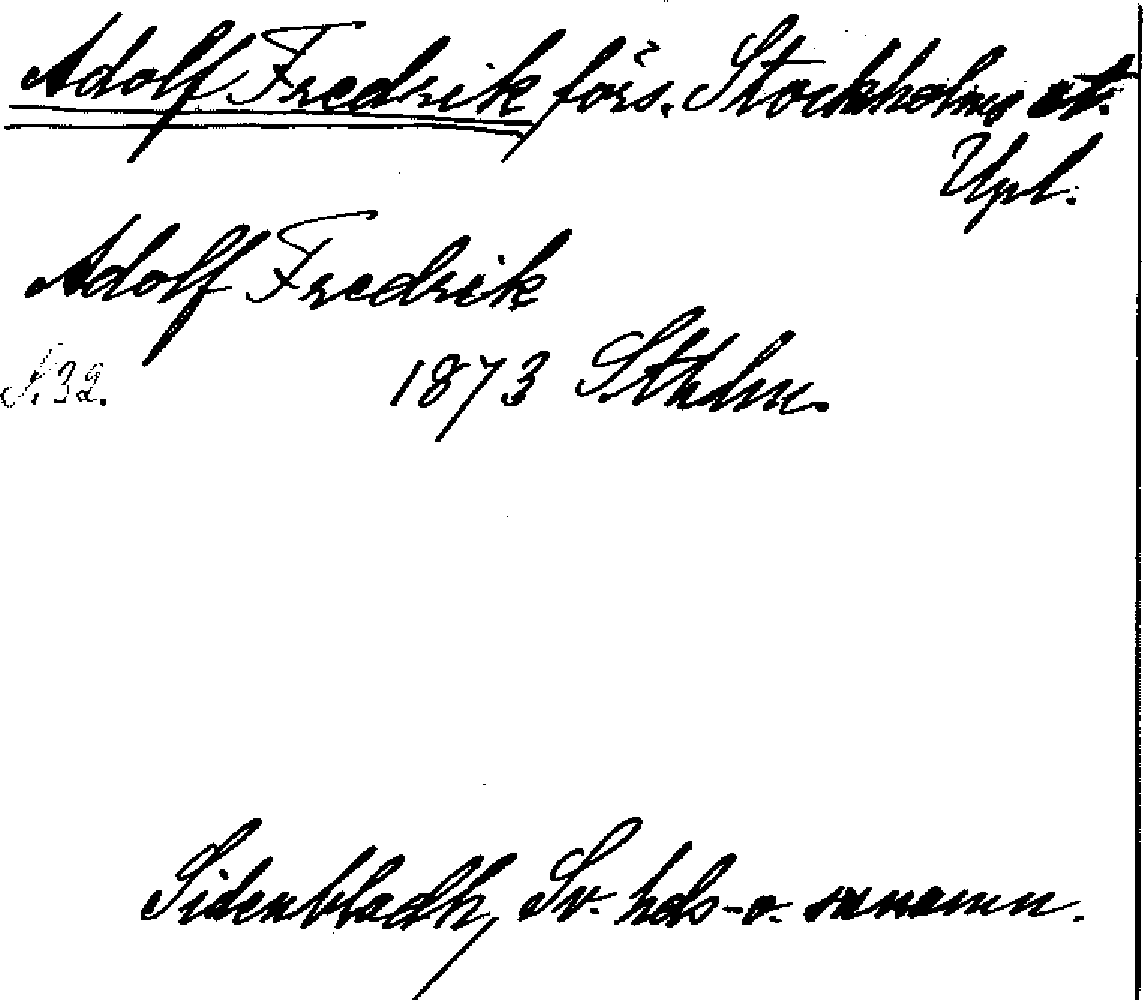 Adolf Fredrik förs. Stockholms st.
Upl.
Adolf Fredrik
S. 32. 1873 Sthlm.
Sidenbladh, Sv. hds- o. snnamn.